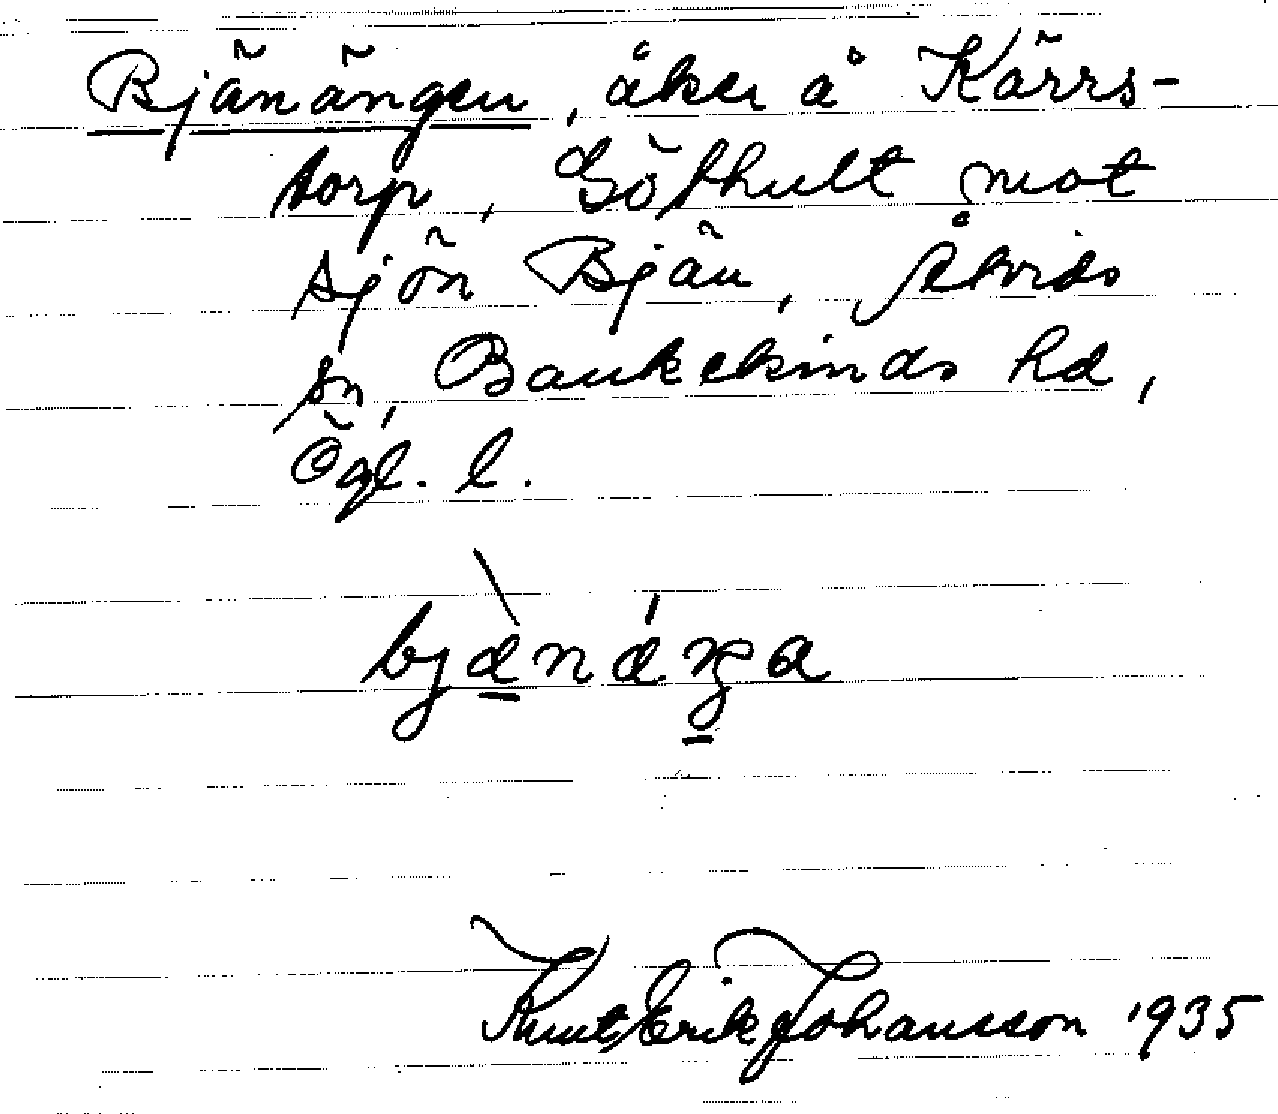 Bjänängen, åker å Kärrs-
torp, Göthult mot
sjön Bjän, Åtvids
sn, Bankekinds hd,
Ögl. l.
Knut Erik Johansson 1935